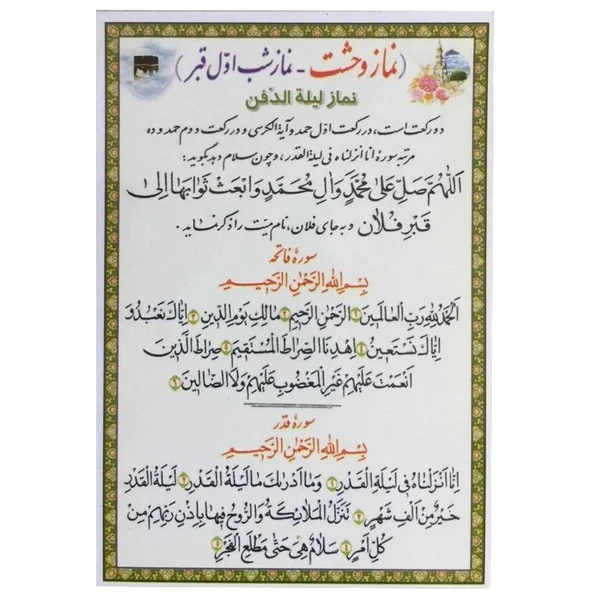 (نماز وحشت - نماز شب اوّل قبر)
نماز لیلة الدّفن
دو رکعت است، در رکعت اوّل حمد و آیة الکرسی و در رکعت دوم حمد و ده
مرتبه سورهٔ انا انزلناه فی لیلة القدر، و چون سلام دهد بگوید:
اَللّٰهُمَّ صَلِّ عَلیٰ مُحَمَّدٍ وَالِ مُحَمَّدٍ وَابْعَثْ ثَوابَها اِلیٰ
قَبْرِ فُلانٍ و به جای فلان، نام میّت را ذکر نماید.
سورهٔ فاتحه
بِسْمِ اللهِ الرَّحْمٰنِ الرَّحیمِ
اَلْحَمْدُ لِلّٰهِ رَبِّ الْعالَمینَ ۱ الرَّحْمٰنِ الرَّحیمِ ۲ مالِكِ یَوْمِ الدّینِ ۳ اِیّاكَ نَعْبُدُ وَ
اِیّاكَ نَسْتَعینُ ٤ اِهْدِنَا الصِّراطَ الْمُسْتَقیمَ ٥ صِراطَ الَّذینَ
اَنْعَمْتَ عَلَیْهِمْ غَیْرِ الْمَغْضُوبِ عَلَیْهِمْ وَلاَ الضّالّینَ
سورهٔ قدر
بِسْمِ اللهِ الرَّحْمٰنِ الرَّحیمِ
اِنّا اَنْزَلْناهُ فی لَیْلَةِ الْقَدْرِ ۱ وَما اَدْرٰیكَ ما لَیْلَةُ الْقَدْرِ ۲ لَیْلَةُ الْقَدْرِ
خَیْرٌ مِنْ اَلْفِ شَهْرٍ ۳ تَنَزَّلُ الْمَلائِكَةُ وَالرُّوحُ فیها بِاِذْنِ رَبِّهِمْ مِنْ
كُلِّ اَمْرٍ ٤ سَلامٌ هِیَ حَتّیٰ مَطْلَعِ الْفَجْرِ ٥